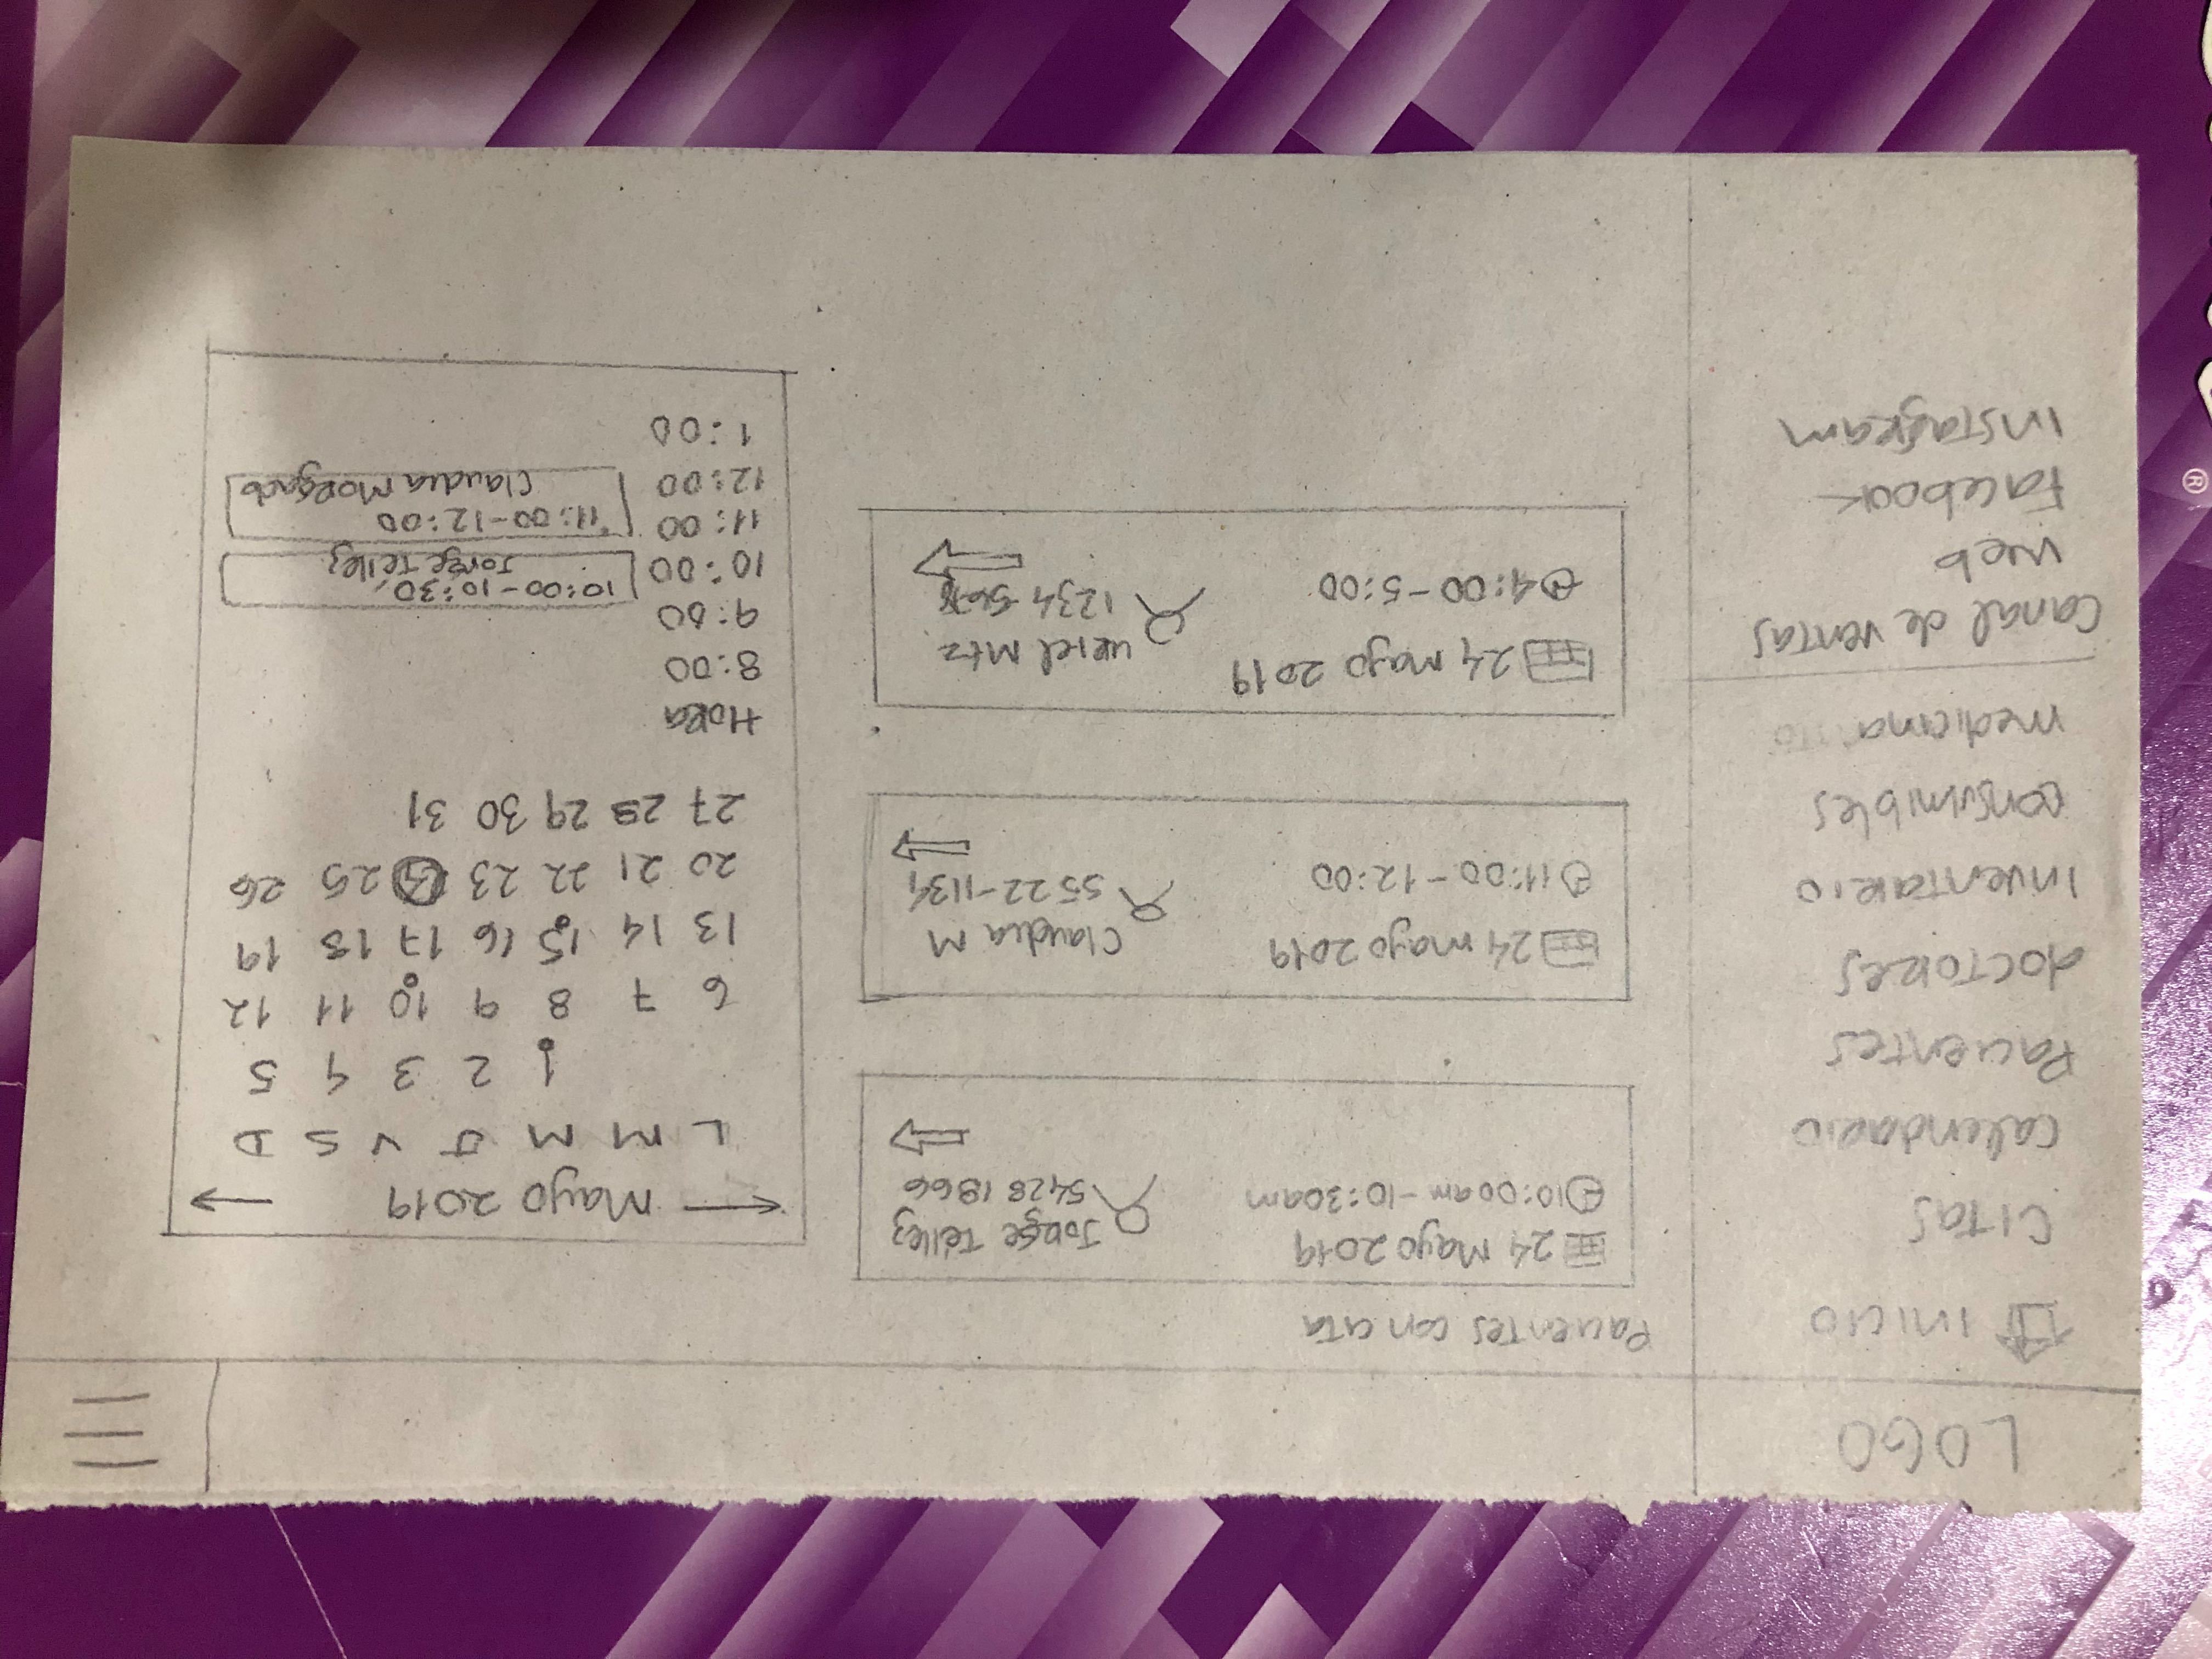 LOGO
Inicio
Citas
Calendario
Pacientes
doctores
Inventario
consumibles
medicina
Canal de ventas
Web
Facebook
Instagram
Pacientes con cita
24 Mayo 2019
10:00am-10:30am
Jorge Téllez
5428 1866
24 mayo 2019
11:00-12:00
Claudia M
5522-1134
24 mayo 2019
4:00-5:00
Uriel Mtz
1234 5678
Mayo 2019
L M M J V S D
1 2 3 4 5
6 7 8 9 10 11 12
13 14 15 16 17 18 19
20 21 22 23 24 25 26
27 28 29 30 31
Hora
8:00
9:00
10:00
10:00-10:30
Jorge Téllez
11:00
11:00-12:00
12:00
Claudia Morgado
1:00
®